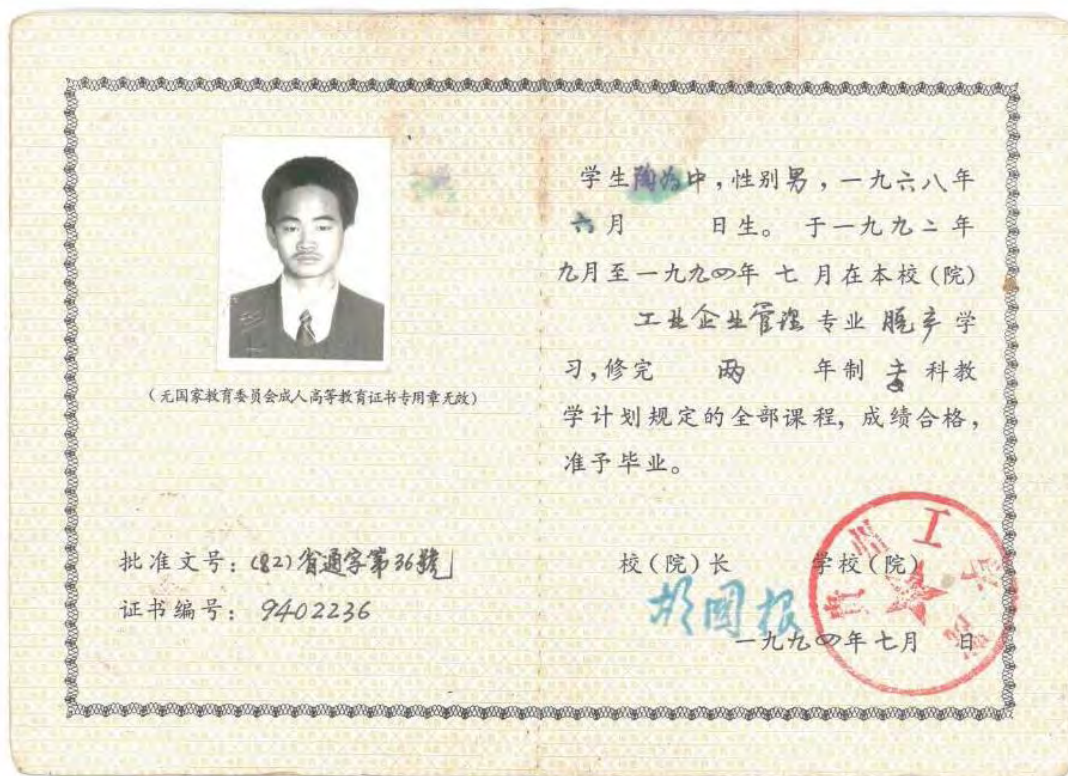 (无国家教育委员会成人高等教育证书专用章无效)
批准文号：(82)省通字第36號
证书编号：9402236
学生陶为中，性别男，一九六八年
六月 日生。于一九九二年
九月至一九九四年 七 月在本校(院)
工业企业管理 专业 脱产 学
习，修完 两 年制 专 科教
学计划规定的全部课程，成绩合格，
准予毕业。
校(院)长 学校(院)
胡國根
一九九四年七月 日
贵州工学院